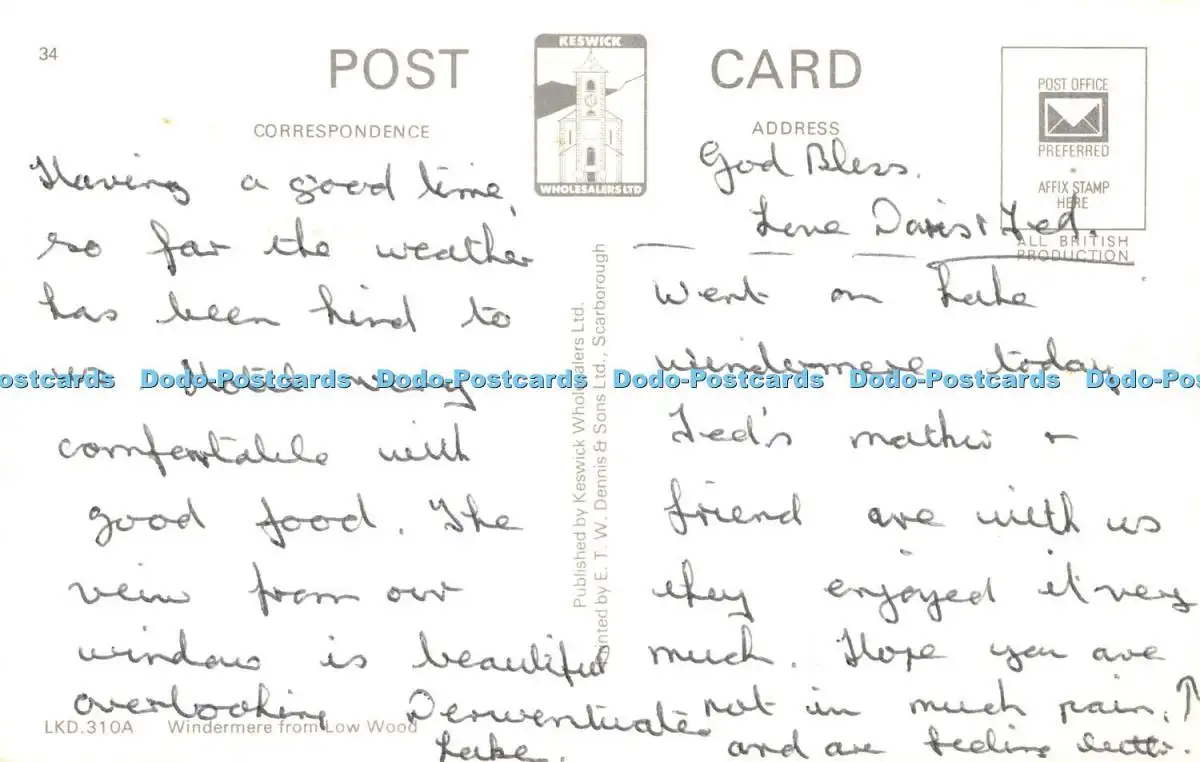 34
POST CARD
KESWICK
WHOLESALERS LTD
CORRESPONDENCE
ADDRESS
POST OFFICE
PREFERRED
AFFIX STAMP
HERE
ALL BRITISH
PRODUCTION
Having a good time,
so far the weather
has been kind to
us Hotel very
comfortable with
good food. The
veiw from our
window is beautiful
overlooking Derwentwater
Lake.
God Bless.
Love Doris & Ted.
Went on Lake
Windermere today
Ted's mother +
friend are with us
they enjoyed it very
much. Hope you are
not in much pain.
and are feeling better.
Published by Keswick Wholesalers Ltd.
Printed by E. T. W. Dennis & Sons Ltd., Scarborough
LKD.310A Windermere from Low Wood
ostcards Dodo-Postcards Dodo-Postcards Dodo-Postcards Dodo-Postcards Dodo-Po